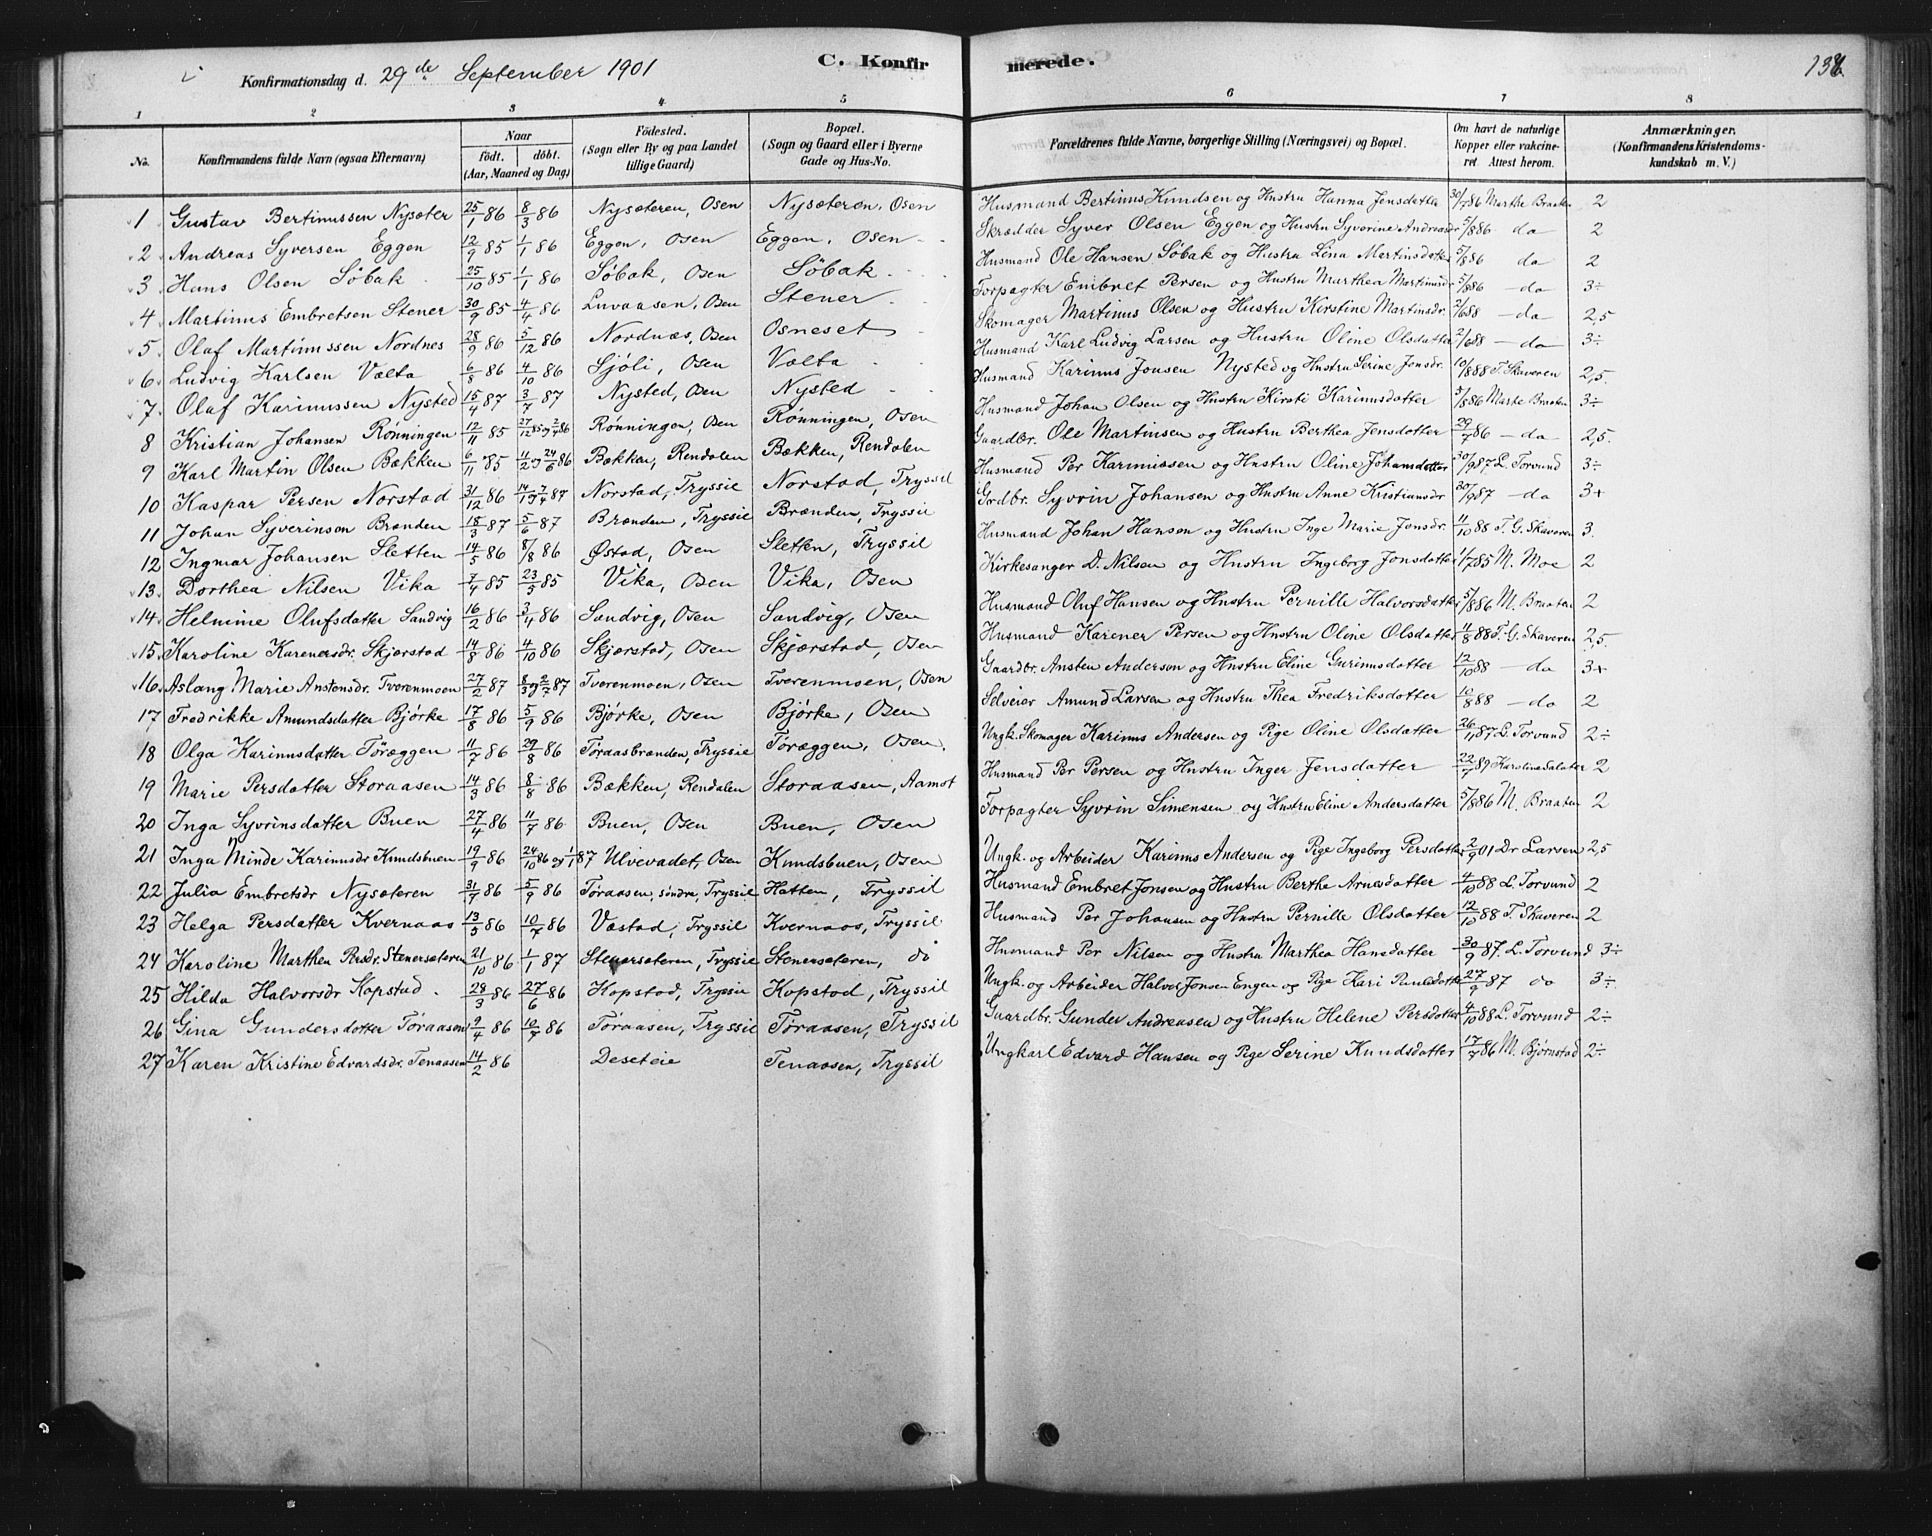 Konfirmationsdag d. 29de September 1901 C. Konfirmerede. 138.
1 2 3 4 5 6 7 8
No. Konfirmandens fulde Navn (ogsaa Efternavn) Naar født. døbt. (Aar, Maaned og Dag) Fødested. (Sogn eller By og paa Landet tillige Gaard) Bopæl. (Sogn og Gaard eller i Byerne Gade og Hus-No.) Forældrenes fulde Navne, borgerlige Stilling (Næringsvei) og Bopæl. Om havt de naturlige Kopper eller vakcineret. Attest herom. Anmærkninger. (Konfirmandens Kristendomskundskab m. V.)
1 Gustav Bertinussen Nysæter 25/1 86 8/3 86 Nysæteren, Osen Nysæteren, Osen Husmand Bertinus Knudsen og Hustru Hanna Jensdatter 30/7 86 Marthe Braaten 2
2 Andreas Syversen Eggen 12/9 85 1/1 86 Eggen, Osen Eggen, Osen Skrædder Syver Olsen Eggen og Hustru Syverine Andreasdr 5/8 86 do 2
3 Hans Olsen Søbak 25/10 85 1/1 86 Søbak, Osen Søbak Husmand Ole Hansen Søbak og Hustru Lina Martinsdatter 5/8 86 do 2
4 Martinus Embretsen Stener 30/9 85 4/4 86 Luvaasen, Osen Stener Forpagter Embret Persen og Hustru Marthea Martinusdr 5/8 86 do 3÷
5 Olaf Martinussen Nordnes 28/9 86 5/12 86 Nordnæs, Osen Osneset Skomager Martinus Olsen og Hustru Kirstine Martinsdr. 2/6 88 do 2,5
6 Ludvig Karlsen Valta 6/8 86 4/10 86 Sjøli, Osen Valta Husmand Karl Ludvig Larsen og Hustru Oline Olsdatter 2/6 88 do 3÷
7 Olaf Karinussen Nysted 15/4 87 3/7 87 Nysted, Osen Nysted Husmand Karinus Jonsen Nysted og Hustru Serine Jonsdr. 10/8 88 T. Skaveren 2,5.
8 Kristian Johansen Rønningen 12/11 85 27/12 85 og 2/4 86 Rønningen, Osen Rønningen, Osen Husmand Johan Olsen og Hustru Kirsti Karinusdatter 5/8 86 Marte Braaten 3÷
9 Karl Martin Olsen Bækken 6/11 85 11/2 og 24/6 86 Bækken, Rendalen Bækken, Rendalen Gaardbr. Ole Martinsen og Hustru Berthea Jensdatter 29/7 86 do 2,5.
10 Kaspar Persen Norstad 31/12 86 14/1 og 7/4 87 Norstad, Tryssil Norstad, Tryssil Husmand Per Karinussen og Hustru Oline Johansdatter 30/9 87 L. Torvund 3÷
11 Johan Syverinsøn Brænden 18/3 87 5/6 87 Brænden, Tryssil Brænden, Tryssil Grdbr. Syvrin Johansen og Hustru Anne Kristiansdr 30/9 87 do 3+
12 Ingmar Johansen Sletten 14/5 86 8/8 86 Østad, Osen Sletten, Tryssil Husmand Johan Hansøn og Hustru Inge Marie Jonsdr. 11/10 88 T. G. Skaveren 3.
13 Dorthea Nilsen Vika 7/4 85 23/5 85 Vika, Osen Vika, Osen Kirkesanger D. Nilsen og Hustru Ingeborg Jonsdatter 1/7 85 M. Moe 2
14 Helmine Olufsdatter Sandvig 16/2 86 3/4 86 Sandvig, Osen Sandvig, Osen Husmand Oluf Hansen og Hustru Pernille Halvorsdatter 5/8 86 M. Braaten 2
15 Karoline Karenersdr. Skjærstad 14/8 86 4/10 86 Skjærstad, Osen Skjærstad, Osen Husmand Karener Persen og Hustru Oline Olsdatter 11/8 88 T. G. Skaveren 2,5
16 Aslaug Marie Anstensdr. Tverenmoen 27/2 87 Tverenmoen, Osen Tverenmoen, Osen Gaardbr. Ansten Anderson og Hustru Eline Gurinusdatter 12/10 88 do 3+
17 Fredrikke Amundsdatter Bjørke 17/8 86 5/9 86 Bjørke, Osen Bjørke, Osen Selveier Amund Larsen og Hustru Thea Fredriksdatter 10/8 88 do 2
18 Olga Karinusdatter Tøræggen 11/7 86 29/8 86 Tøraasbrænden, Tryssil Tøræggen, Osen. Ungk. Skomager Karinus Andersen og Pige Oline Olsdatter 26/1 87 L. Torvund 2÷
19 Marie Persdatter Storaasen 14/3 86 8/8 86 Bækken, Rendalen Storaasen, Aamot Husmand Per Persen og Hustru Inger Jensdatter 22/7 89 Karoline 2
20 Inga Syvrinsdatter Buen 27/4 86 11/7 86 Buen, Osen Buen, Osen Forpagter Syvrin Simensen og Hustru Eline Andersdatter 5/8 86 M. Braaten 2
21 Inga Minde Karinusdr Knudsbuen 19/9 86 24/10 86 og 1/1 87 Ulvevadet, Osen Knudsbuen, Osen Ungk. og Arbeider Karinus Andersen og Pige Ingeborg Persdatter 2/9 01 Dr Larsen 2,5
22 Julia Embretsdr Nysæteren 31/7 86 5/9 86 Tøraasen, søndre, Tryssil Hatten, Tryssil Husmand Embret Jonsen og Hustru Berthe Arnesdatter 4/10 88 L. Torvund 2
23 Helga Persdatter Kvernaas 13/5 86 10/7 86 Væstad, Tryssil Kvernaas, Tryssil Husmand Per Johansen og Hustru Pernille Olsdatter 12/10 88 T. Skaveren 2
24 Karoline Marthea Persdr. Stenersæteren 21/10 86 1/1 87 Stenersæteren, Tryssil Stenersæteren, do Husmand Per Nilsen og Hustru Marthea Hansdatter 30/9 87. L. Torvund 3÷
25 Hilda Halvorsdr Kopstad. 28/3 86 27/6 86 Kopstad, Tryssil Kopstad, Tryssil Ungk. og Arbeider Halvor Jonsen Engen og Pige Kari Paulsdatter 27/9 87 do 3÷
26 Gina Gundersdatter Tøraasen 9/4 86 10/7 86 Tøraasen, Tryssil Tøraasen, Tryssil Gaardbr. Gunder Andreasen og Hustru Helene Persdatter 4/10 88 L. Torvund 2÷
27 Karen Kristine Edvardsdr. Tenaasen 14/2 86 Deseteie Tenaasen, Tryssil Ungkarl Edvard Hansen og Pige Serine Knudsdatter 17/7 86 M. Bjørnstad 2÷